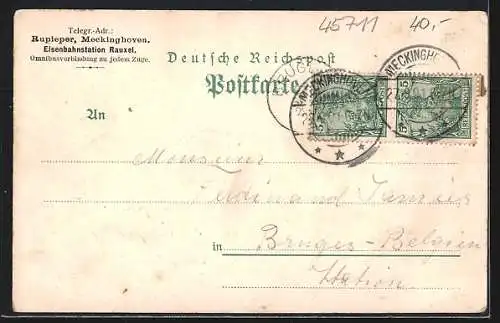 Telegr.-Adr.:
Rupieper, Meckinghoven.
Eisenbahnstation Rauxel.
Omnibusverbindung zu jedem Zuge.
45711
40,-
Deutsche Reichspost
Postkarte
MECKINGHOVEN
MECKINGHO
5
5
An
Monsieur
in
Bruges-Belgien
Station